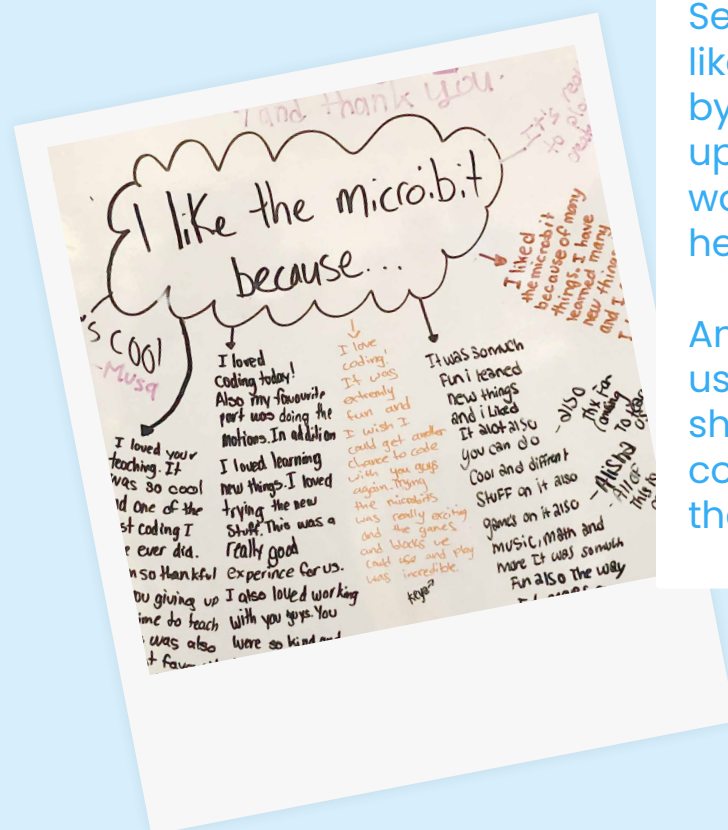 and thank you.
I like the micro:bit
because...
It's
's cool
-Musa
I loved your
teaching. It
was so cool
d one of the
st coding I
ever did.
so thankful
ou giving up
ime to teach
was also
I loved
coding today!
Also my favourite
part was doing the
motions. In addition
I loved learning
new things. I loved
trying the new
Stuff. This was a
really good
experince for us.
I also loved working
with you guys. You
were so kind and
I love
coding!
It was
extremly
fun and
I wish I
could get another
chance to code
with you guys
again. Trying
the microbits
was really exciting
and the games
and blocks we
could use and play
was incredible.
It was somuch
Fun i leaned
new things
and i liked
It alot also
you can do
Cool and diffrent
Stuff on it also
games on it also
music, math and
more It was somuch
Fun also The way
I liked
the microbit
because of many
things. I have
learned many
new things
and I
-also
thx for
coming
to
-Alisha
-All of
this is
Se
lik
by
up
wo
he
An
us
sh
co
the